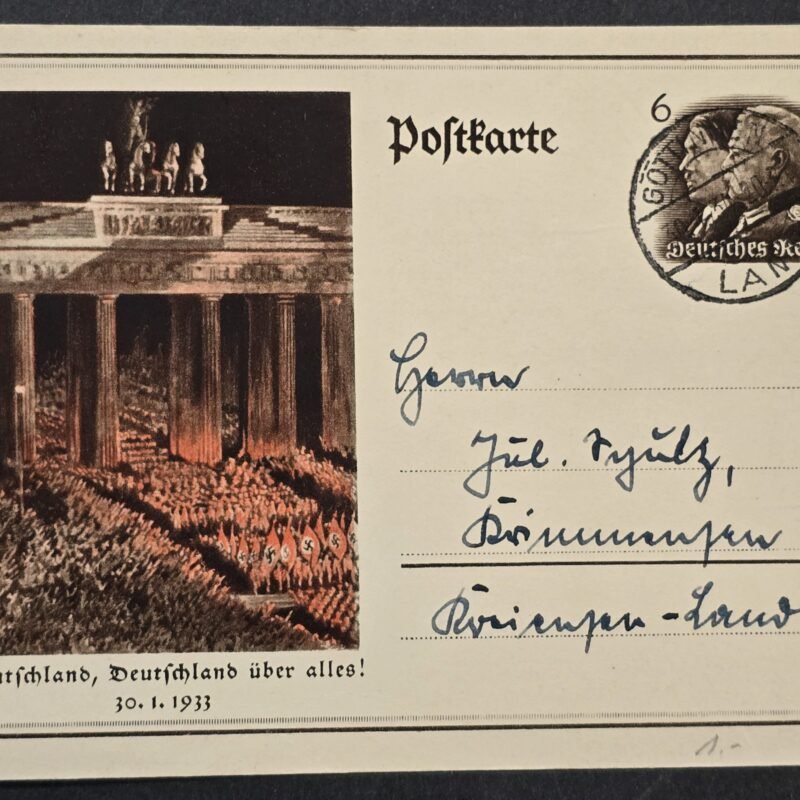 Postkarte
6
GÖTT
LAN
Deutsches Re
Herrn
Jul. Schultz,
Krimmensen
Kreiensen-Land
utschland, Deutschland über alles!
30. 1. 1933
1.-